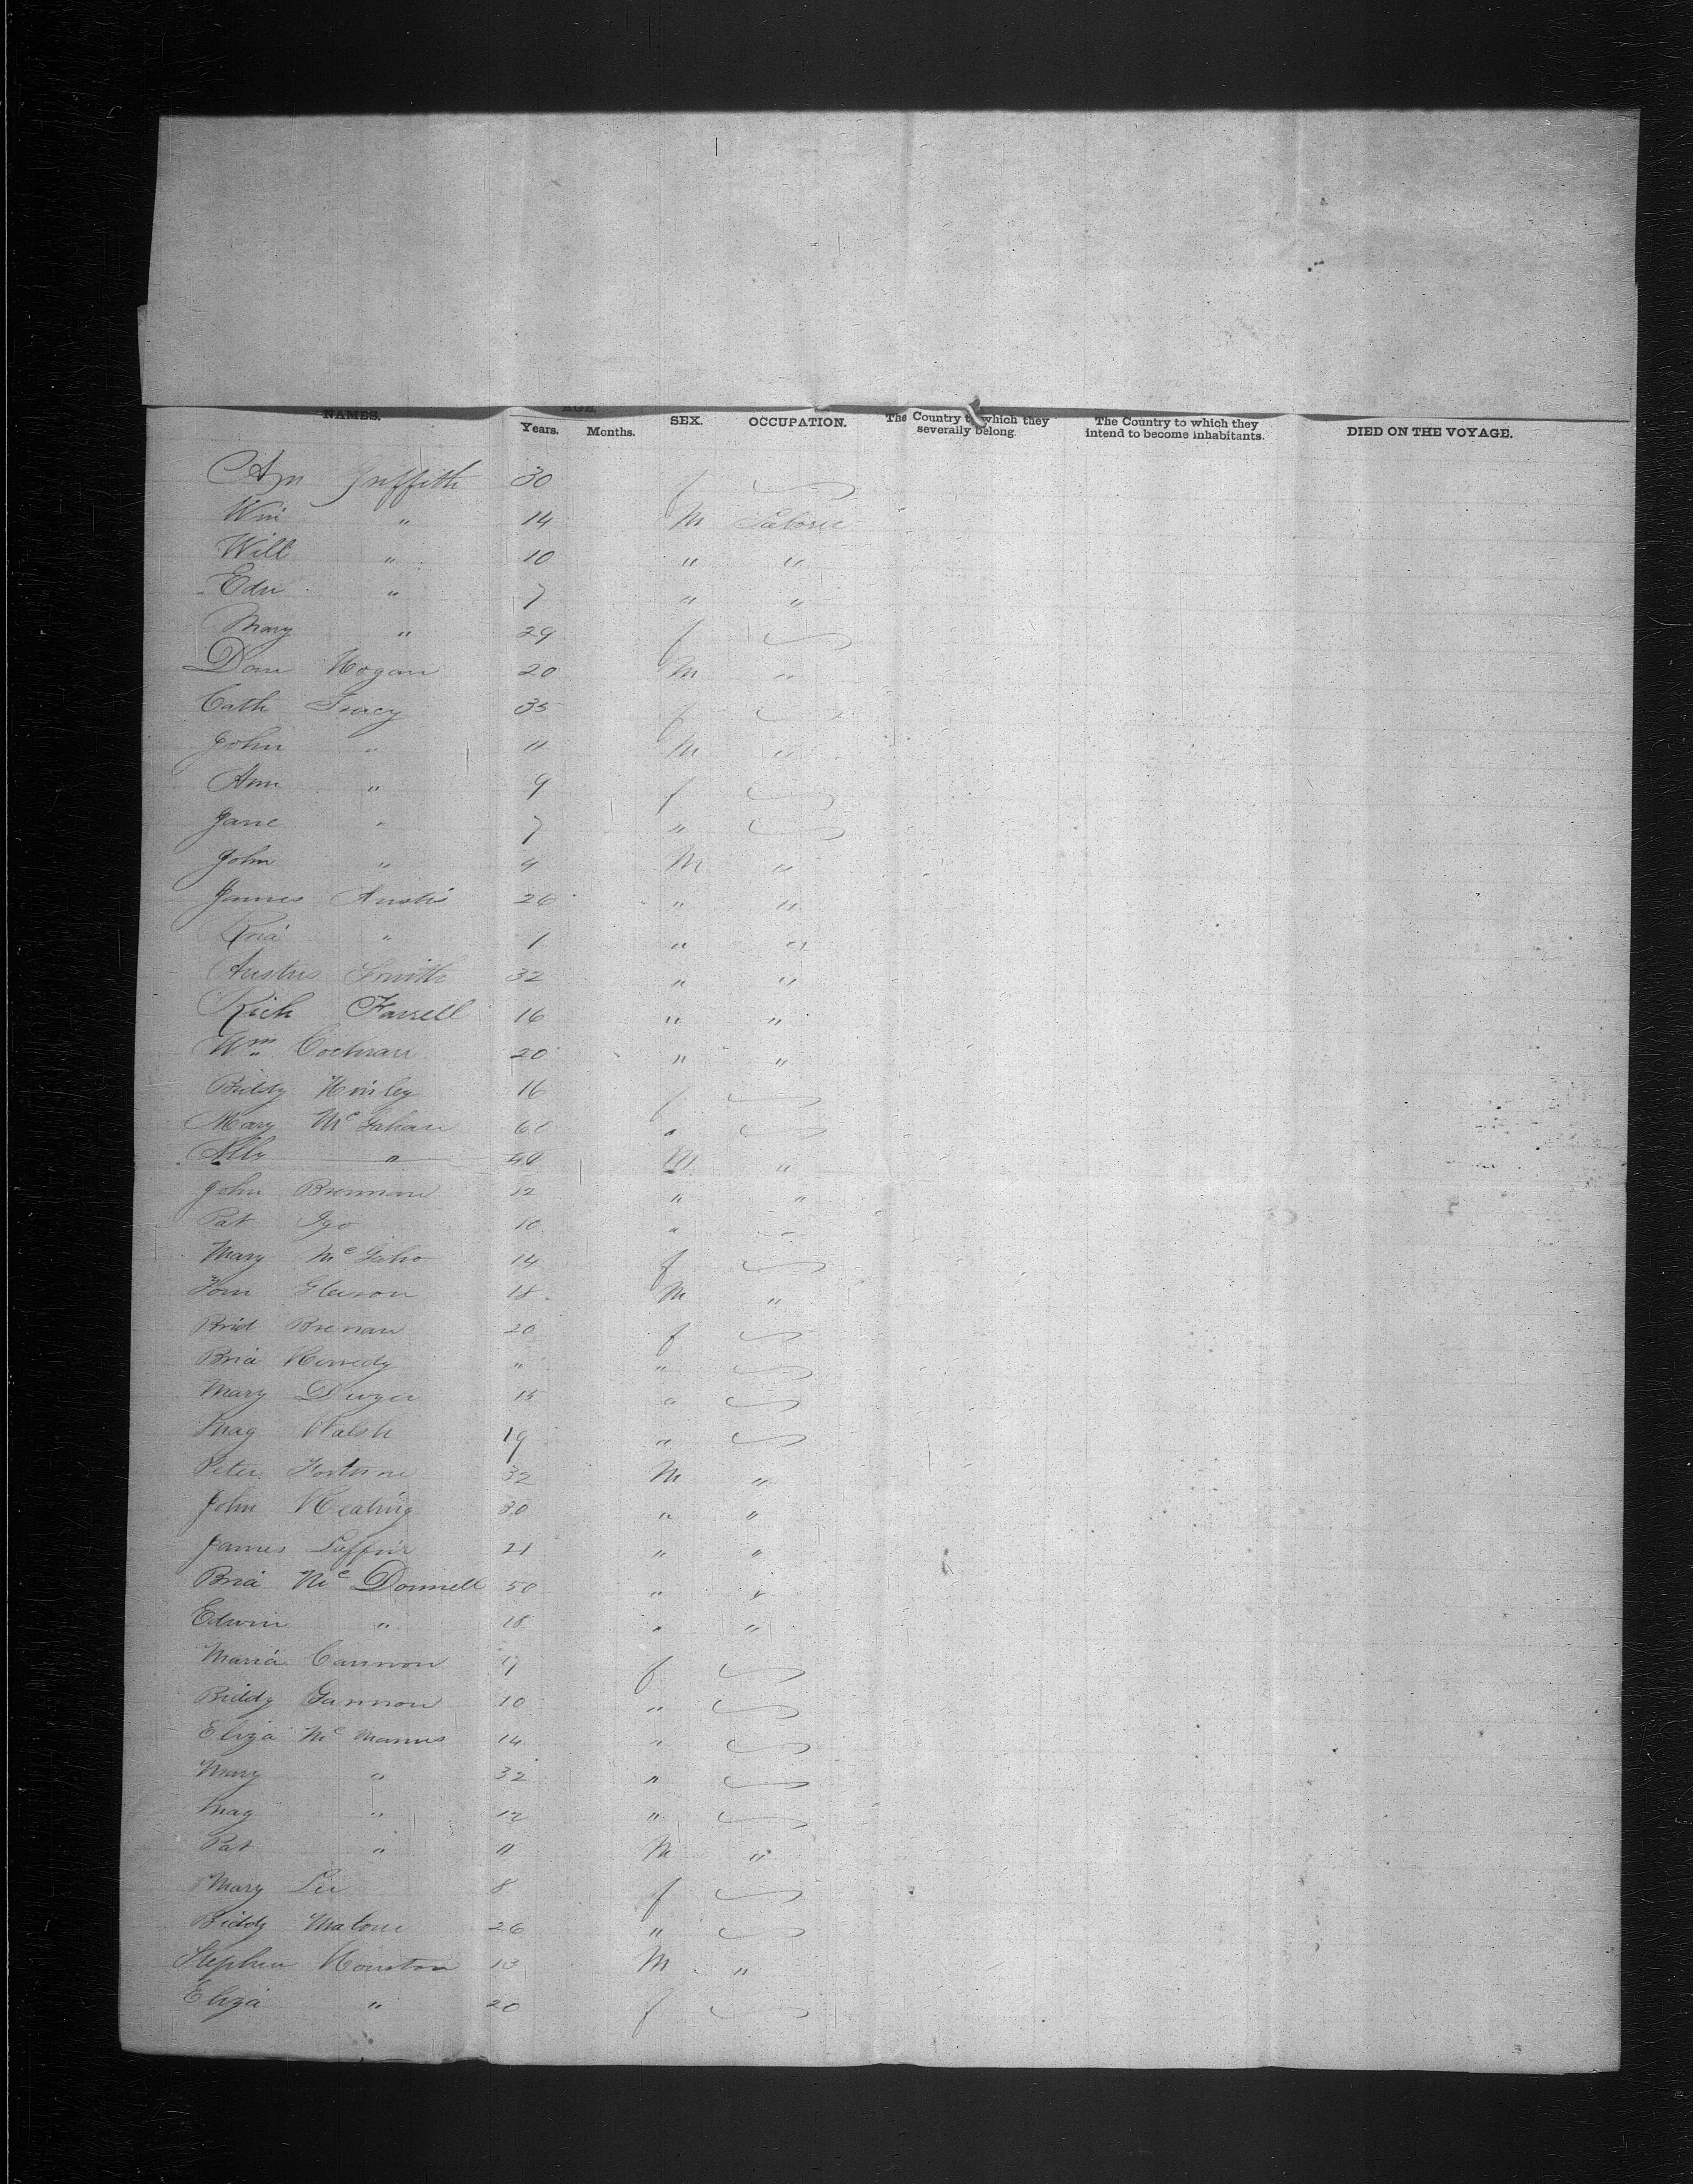 NAMES. AGE. SEX. OCCUPATION. The Country to which they severally belong. The Country to which they intend to become inhabitants. DIED ON THE VOYAGE.
Years. Months.
Ann Griffith 30 f
Wm " 14 M Laborer
Will " 10 " "
Edw " 7 " "
Mary " 29 f
Dan Hogan 20 M "
Cath Tracy 35 f
John " 11 M "
Ann " 9 f
Jane " 7 "
John " 4 M "
James Austis 26 " "
" 1 " "
Smith 32 " "
Rich Farrell 16 " "
Wm Cochran 20 " "
Biddy 16 f
Mary McGahan "
" M "
John Brennan 12 " "
Pat Igo 10 " "
Mary McGaho 14 f
Tom Gleason 18 M "
Brid Brenan 20 f
Kennedy " "
Mary Dwyer 15 "
Mag Walsh 19 "
Peter Fortune 32 M "
John Keating 30 " "
James Laffin 21 " "
McDonnell 50 " "
Edwin " 18 " "
Maria Cannon f
Biddy Gannon 10 "
Eliza McManus 14 "
Mary " 32 "
Mag " 12 "
Pat " 11 M "
Mary Lee 8 f
Biddy Malone 26 "
Stephen Houston 13 M "
Eliza " 20 f